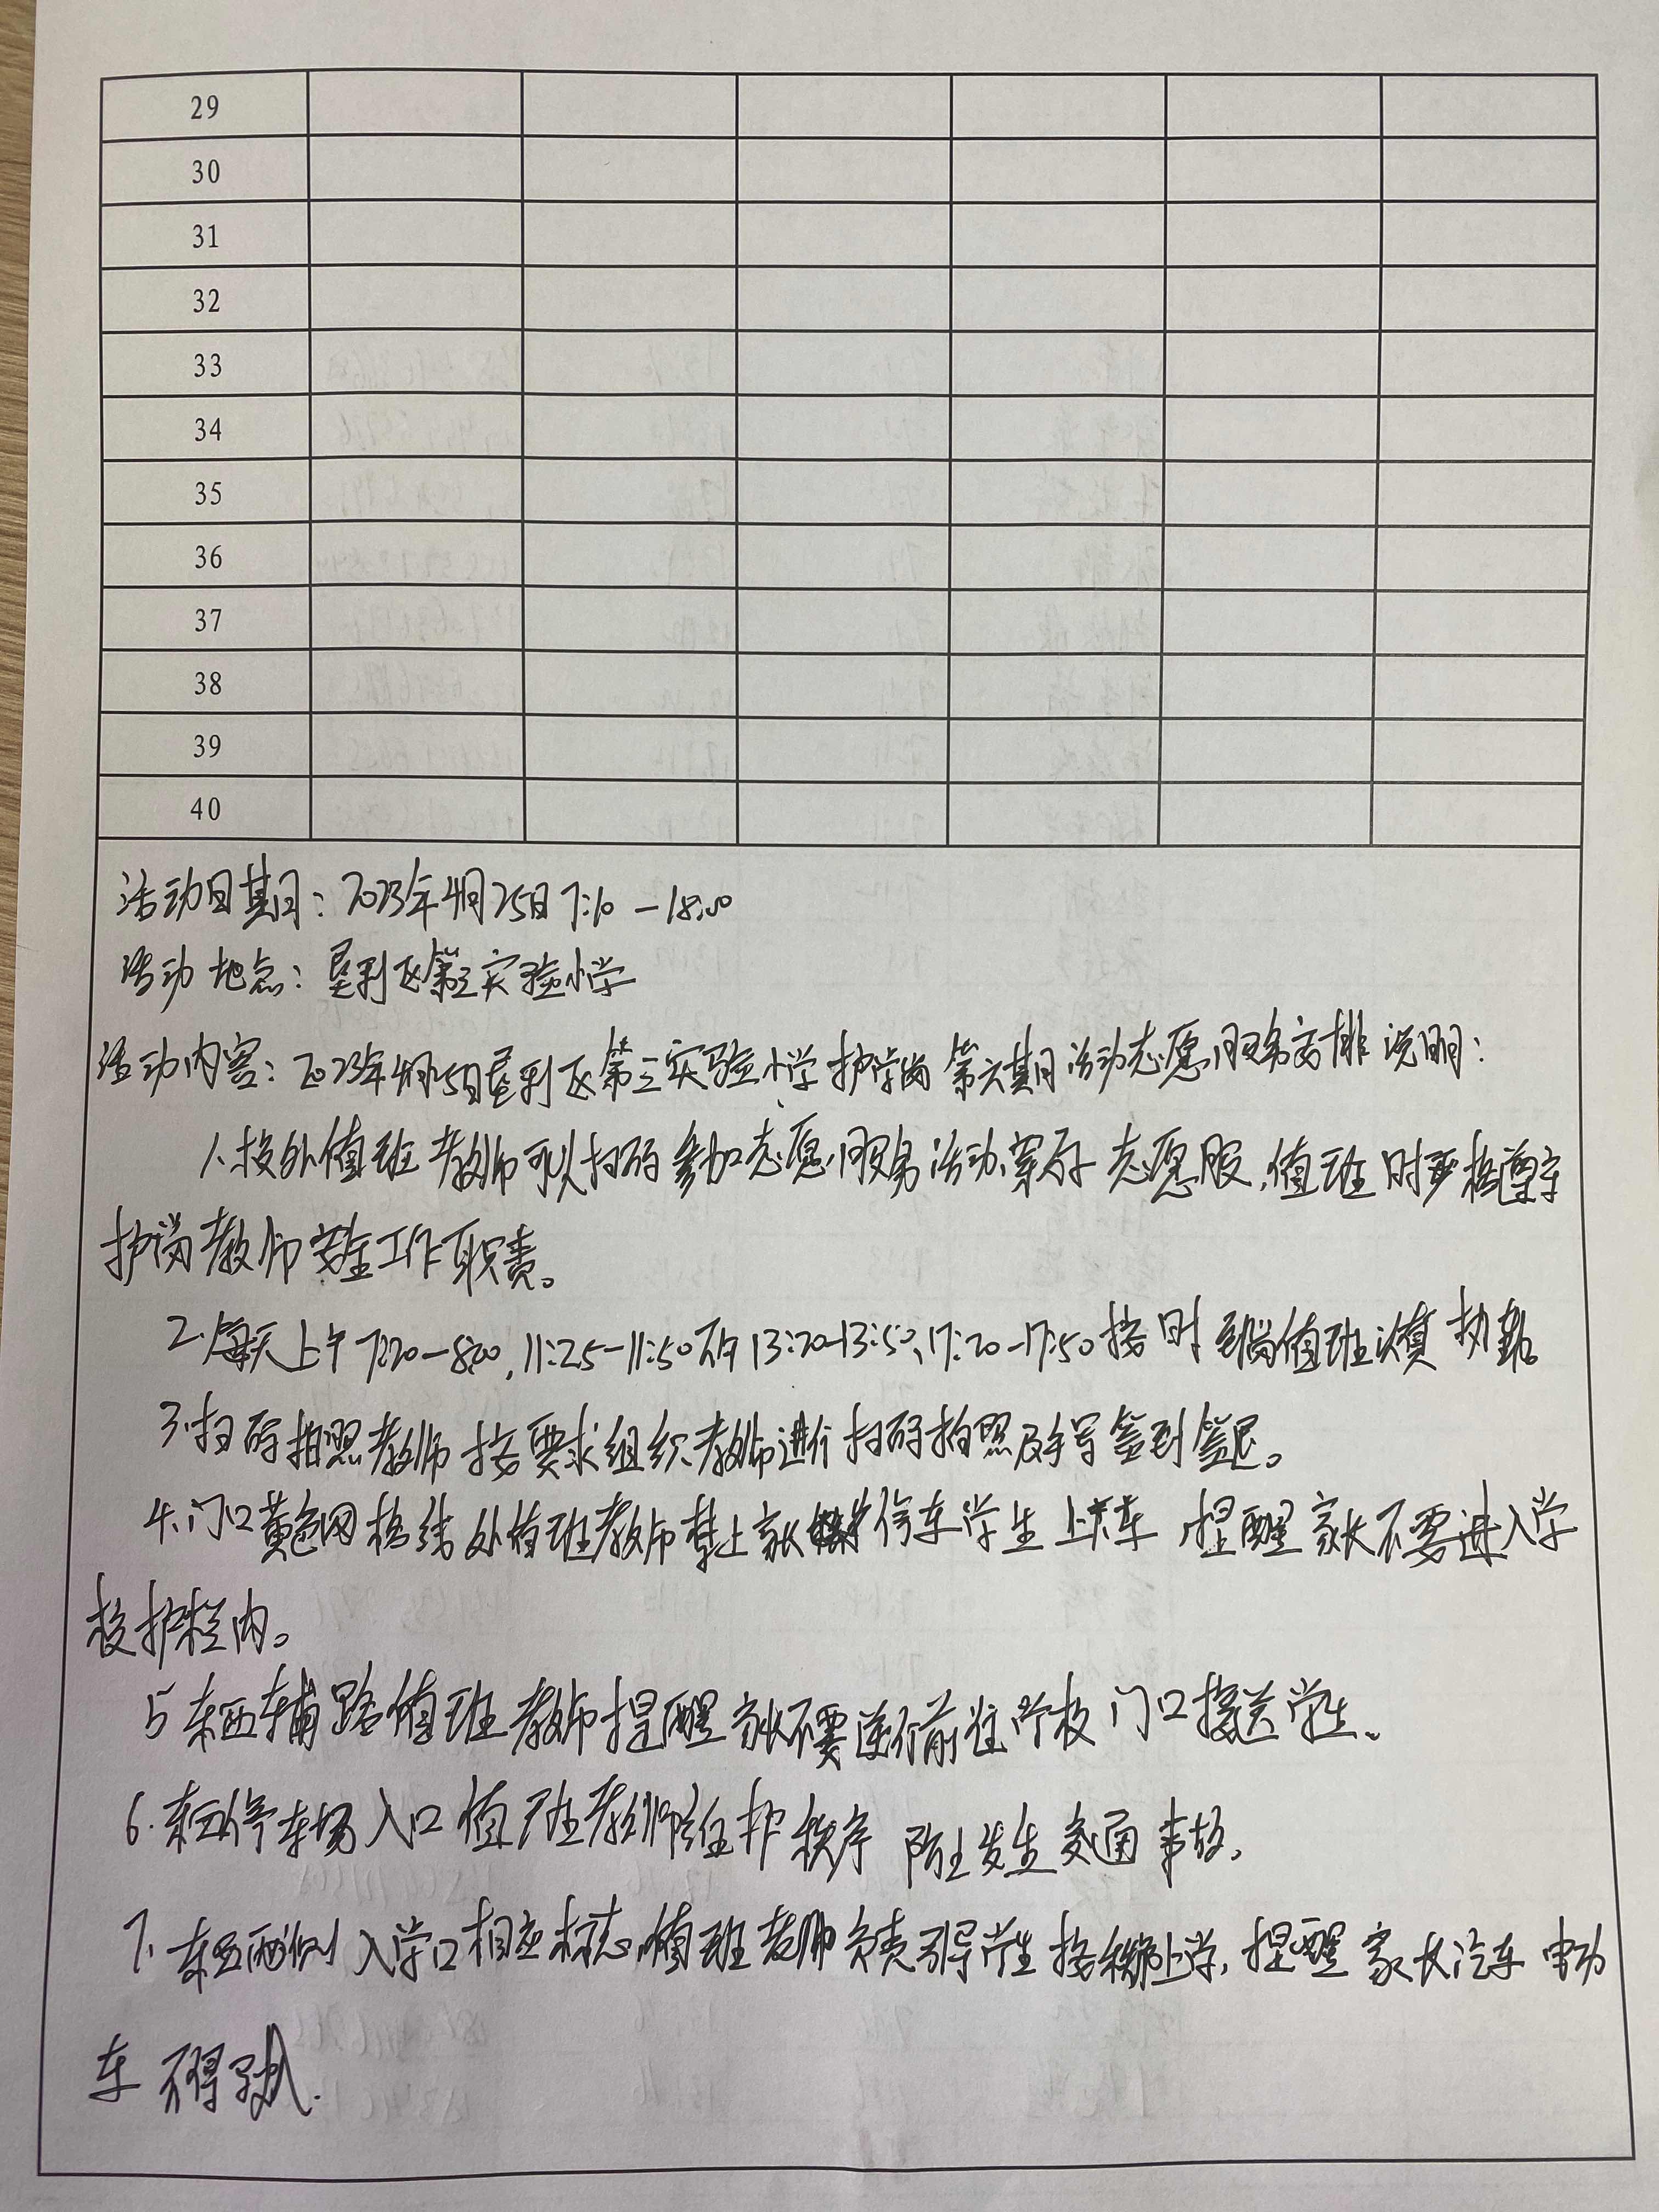 29
30
31
32
33
34
35
36
37
38
39
40
活动日期：2023年4月25日7:10-18:00
活动地点：垦利区第三实验小学
活动内容：2023年4月25日垦利区第三实验小学护学岗第六期活动志愿服务安排说明：
1.校外值班教师可以扫码参加志愿服务活动,穿好志愿服,值班时严格遵守
护岗教师安全工作职责。
2.每天上午7:20-8:00,11:25-11:50下午13:20-13:50、17:20-17:50按时到岗值班认真执勤。
3.扫码拍照教师按要求组织教师进行扫码拍照及手写签到签退。
4.门口黄色网格线处值班教师禁止家长停车学生上下车 提醒家长不要进入学
校护栏内。
5东西辅路值班教师提醒家长不要逆行前往学校门口接送学生、
6.东西停车场入口值班教师维护秩序 防止发生交通事故,
7.东西两侧入学口相应标志值班教师负责引导学生按梯队上学,提醒家长汽车电动
车不得驶入.